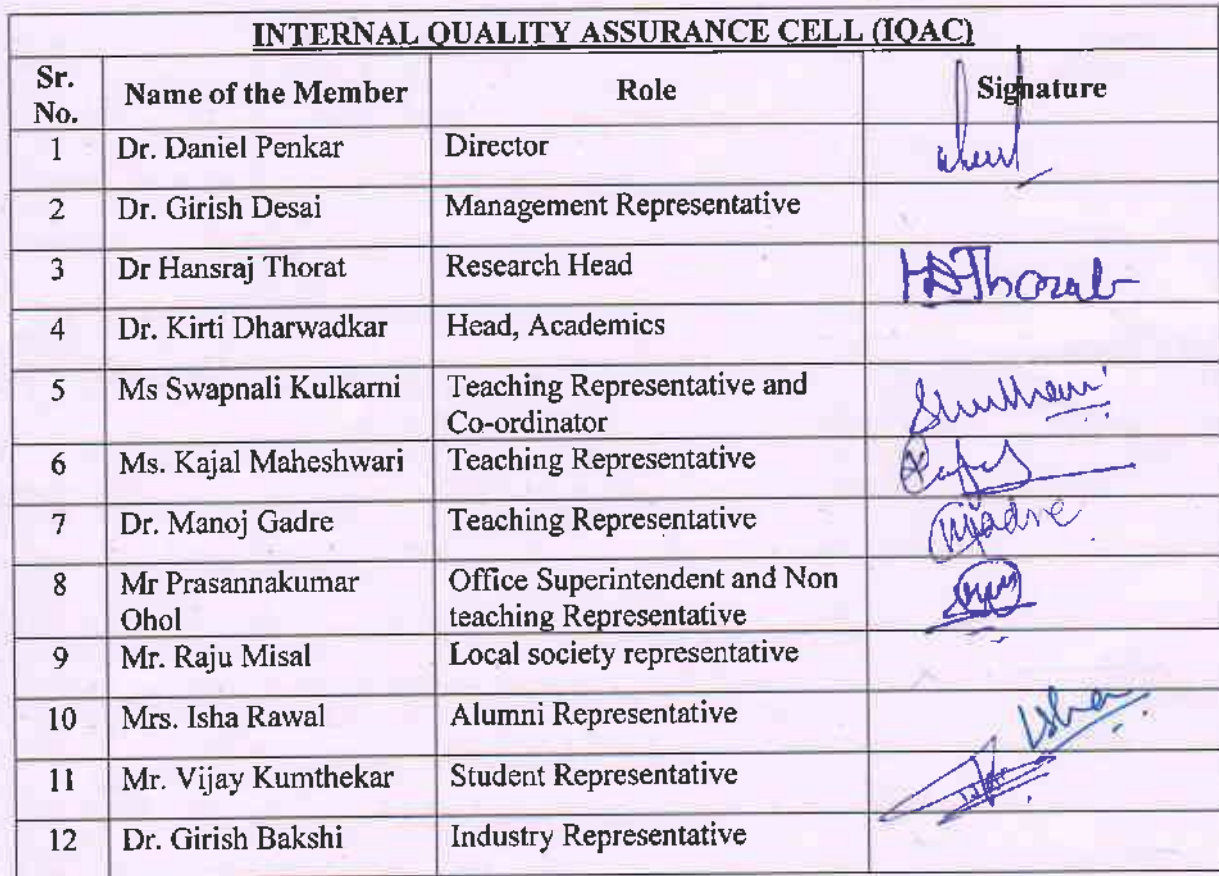 INTERNAL QUALITY ASSURANCE CELL (IQAC)
Sr. No. Name of the Member Role Signature
1 Dr. Daniel Penkar Director
2 Dr. Girish Desai Management Representative
3 Dr Hansraj Thorat Research Head HDThorat
4 Dr. Kirti Dharwadkar Head, Academics
5 Ms Swapnali Kulkarni Teaching Representative and
Co-ordinator
6 Ms. Kajal Maheshwari Teaching Representative
7 Dr. Manoj Gadre Teaching Representative
8 Mr Prasannakumar Office Superintendent and Non
Ohol teaching Representative
9 Mr. Raju Misal Local society representative
10 Mrs. Isha Rawal Alumni Representative Isha
11 Mr. Vijay Kumthekar Student Representative
12 Dr. Girish Bakshi Industry Representative